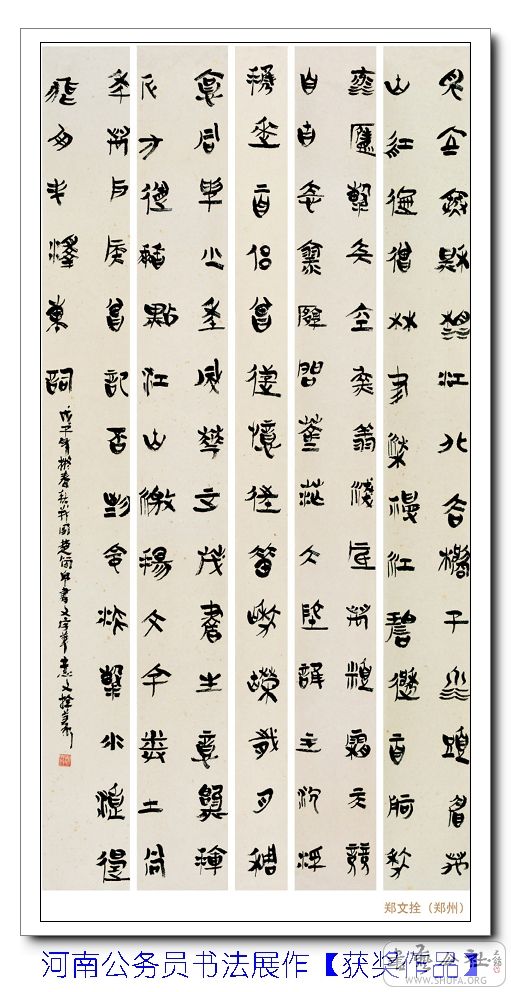 獨立寒秋湘江北去橘子洲頭看萬
山紅遍層林盡染漫江碧透百舸爭
流鷹擊長空魚翔淺底萬類霜天競
自由悵寥廓問蒼茫大地誰主沉浮
攜來百侶曾遊憶往昔崢嶸歲月稠
恰同學少年風華正茂書生意氣揮
斥方遒指點江山激揚文字糞土當
年萬戶侯曾記否到中流擊水浪遏
飛舟毛澤東詞
春秋戰國楚簡帛書文字筆意文拴
郑文拴（郑州）
河南公务员书法展作【获奖作品】
书艺公社
WWW.SHUFA.ORG